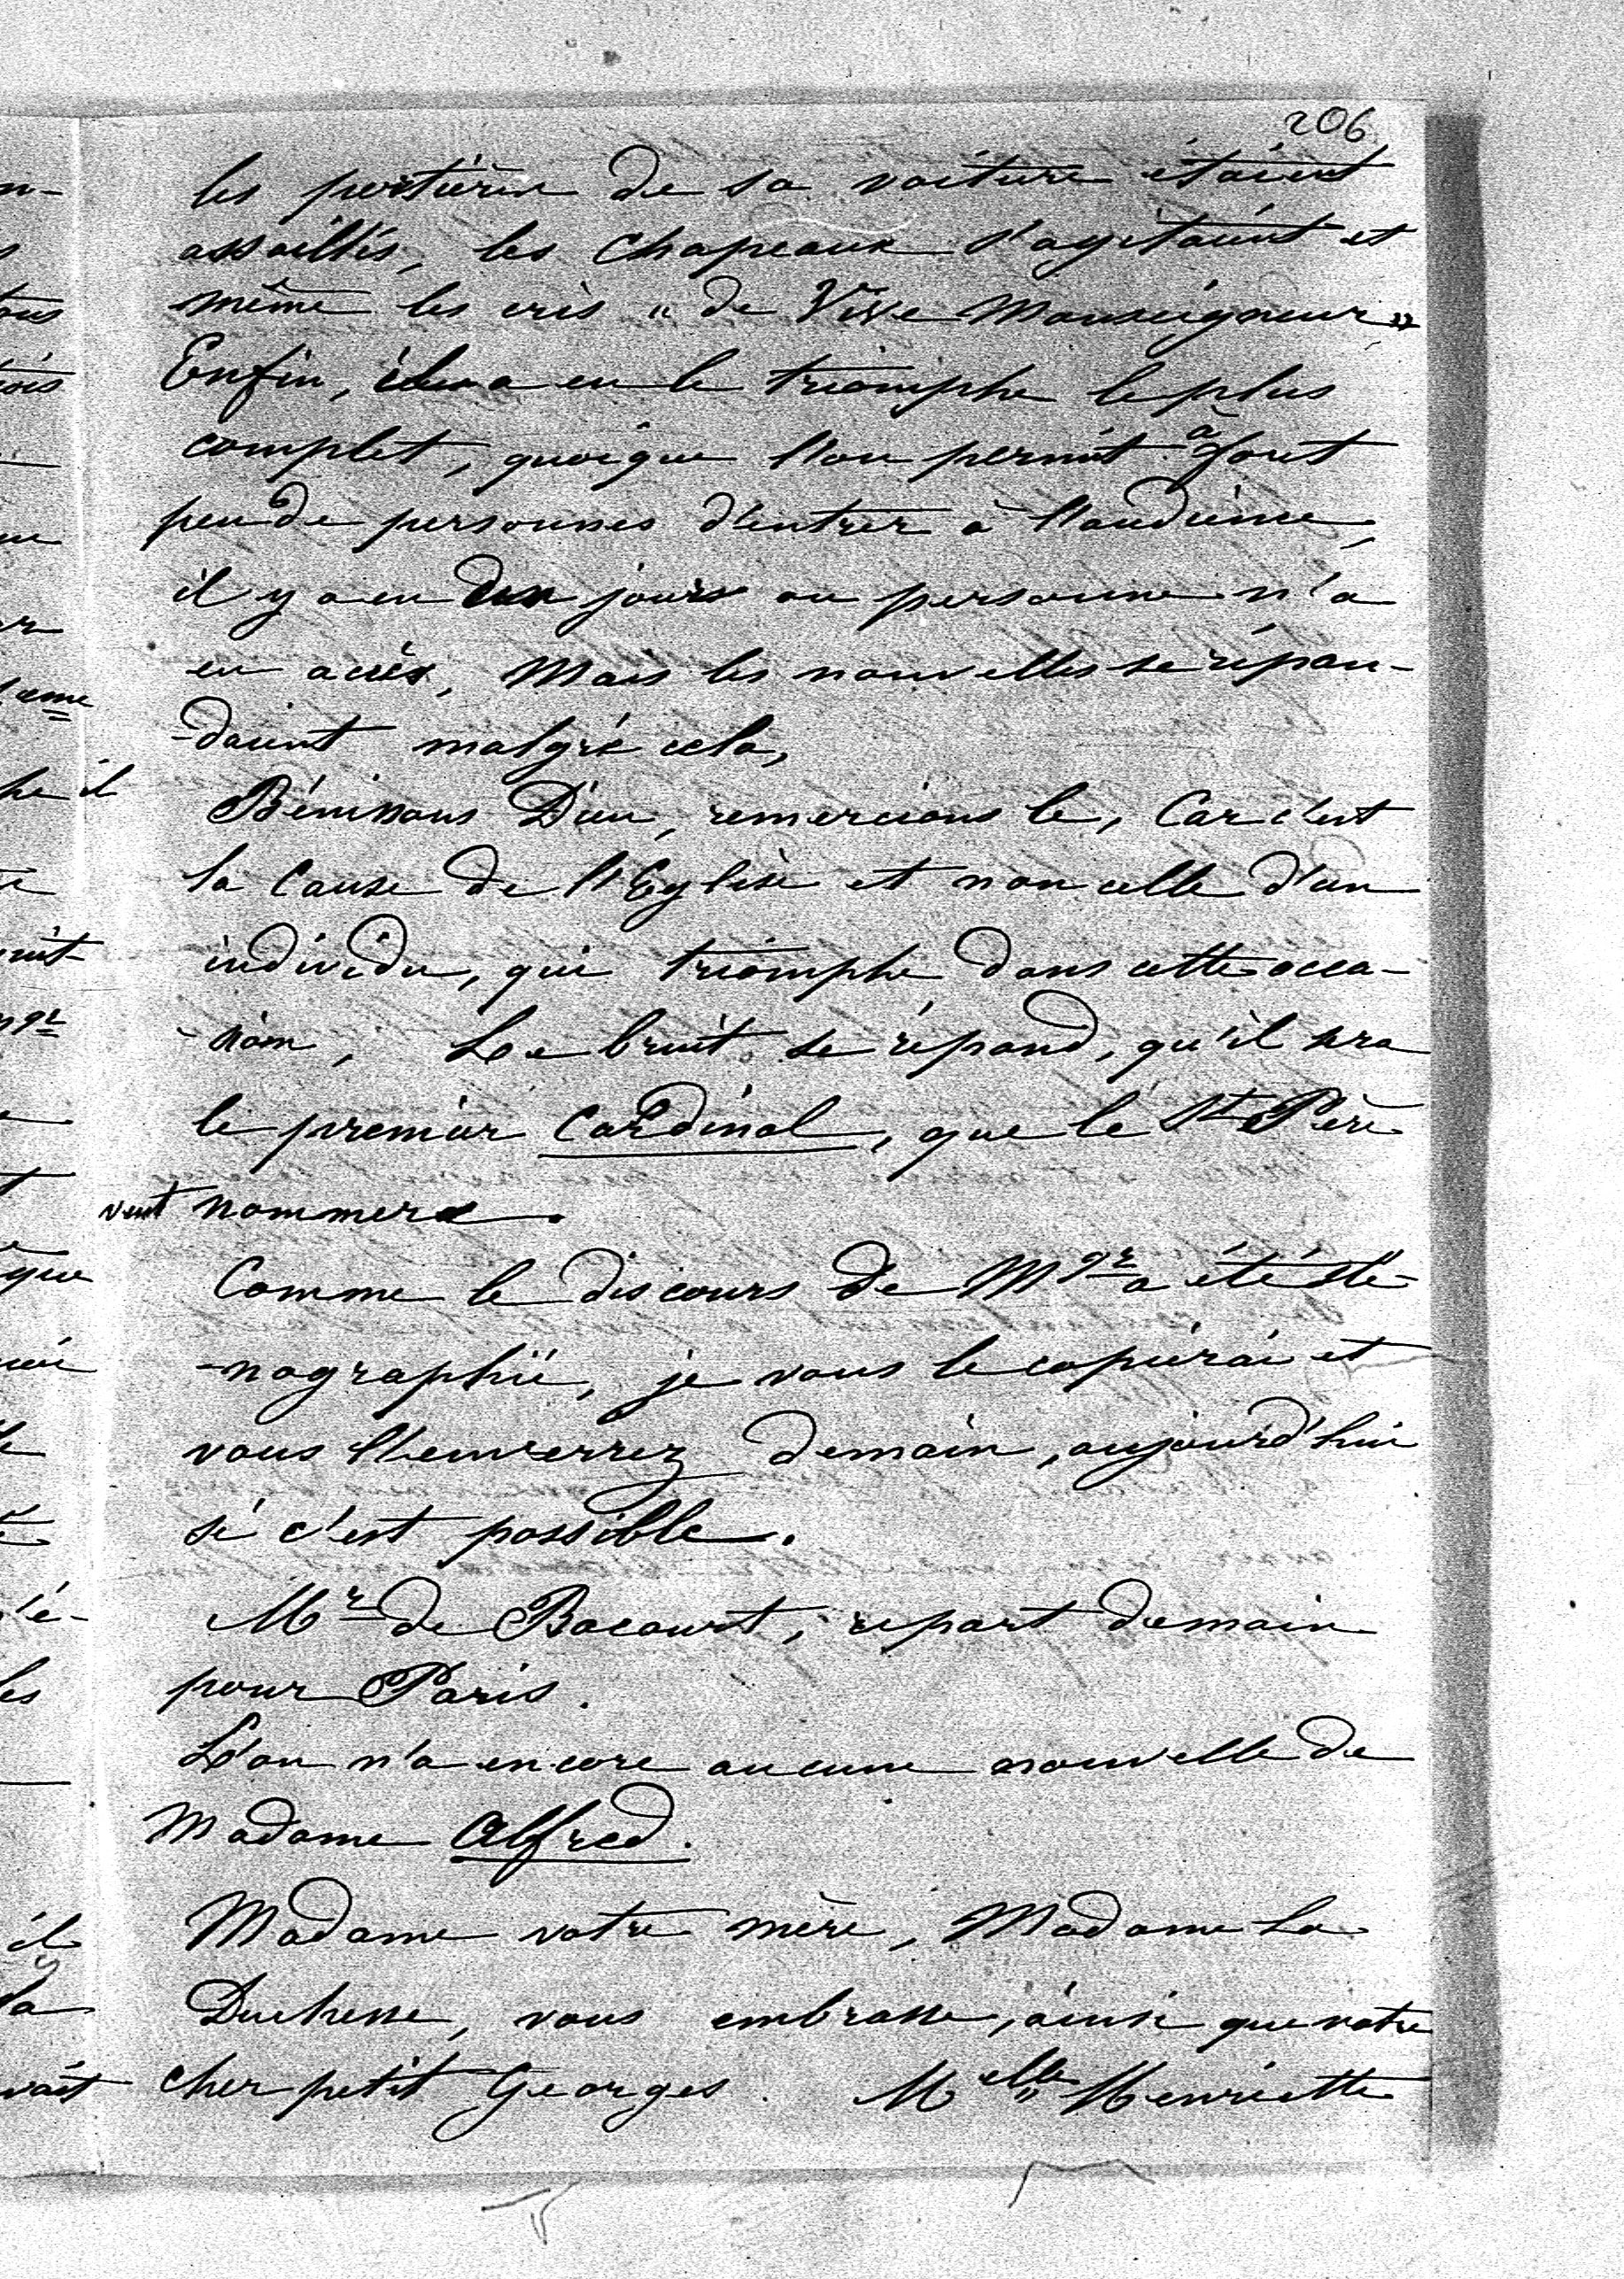 206
les portières de sa voiture étaient
assaillis, les chapeaux s'agitaient et
même les cris " de Vive Monseigneur "
Enfin, il a eu le triomphe le plus
complet, quoique l'on permit à fort
peu de personnes d'entrer à l'audience,
il y a eu un jours ou personne n'a
eu accès, Mais les nouvelles se répan-
-daient malgré cela,
Bénissons Dieu, remercions le, Car c'est
la Cause de l'Eglise et non celle d'un
individu, qui triomphe dans cette occa-
-sion, Le bruit se répand, qu'il sera
le premier Cardinal, que le St Père
veut nommera.
Comme le discours de Mgr a été sté-
-nographié, je vous le copierai et
vous l'enverrez demain, aujourd'hui
si c'est possible.
Mr de Bacourt, repart demain
pour Paris.
L'on n'a encore aucune nouvelle de
Madame Alfred.
Madame votre mère, Madame la
Duchesse, vous embrasse, ainsi que votre
cher petit Georges. Melle Henriette